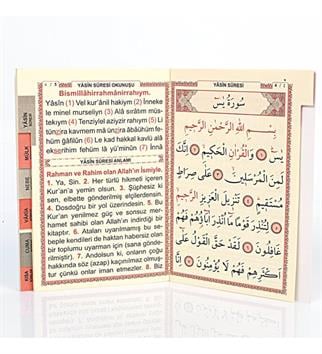 YÂSÎN SÛRESİ OKUNUŞU
Bismillâhirrahmânirrahıym.
Yâsîn (1) Vel kur'ânil hakiym (2) İnneke
le minel murseliyn (3) Alâ sırâtım müs-
tekıym (4) Tenziylel aziyzir rahıym (5) Li
tünzira kavmem mâ ünzira âbâühüm fe-
hüm ğâfilûn (6) Le kad hakkal kavlü alâ
ekserihim fehüm lâ yü'minûn (7) İnnâ
YÂSÎN SÛRESİ ANLAMI
Rahman ve Rahim olan Allah'ın İsmiyle.
1. Ya, Sin. 2. Her türlü hikmeti içeren
Kur'an'a yemin olsun. 3. Şüphesiz ki
sen, elbette gönderilmiş elçilerdensin.
4. Dosdoğru bir yol üzerindesin. 5. Bu
Kur'an yenilmez güç ve sonsuz mer-
hamet sahibi olan Allah'ın indirdiği bir
kitaptır. 6. Ataları uyarılmamış bu se-
beple kendileri de haktan habersiz olan
bir toplumu uyarman için (sana gönde-
rilmiştir). 7. Andolsun ki, onların çoğu
hakkında söz (azap) kaçınılmaz olmuş-
tur çünkü onlar iman etmezler. 8. Biz
YÂSÎN
MÜLK
NEBE
CUMA
YÂSÎN SÛRESİ
سُورَةُ يٰسٓ
بِسْمِ اللّٰهِ الرَّحْمٰنِ الرَّحِيمِ
يٰسٓ ﴿١﴾ وَالْقُرْاٰنِ الْحَكِيمِ ﴿٢﴾ اِنَّكَ
لَمِنَ الْمُرْسَلِينَ ﴿٣﴾ عَلٰى صِرَاطٍ
مُسْتَقِيمٍ ﴿٤﴾ تَنْزِيلَ الْعَزِيزِ الرَّحِيمِ ﴿٥﴾
لِتُنْذِرَ قَوْمًا مَٓا اُنْذِرَ اٰبَٓاؤُ۬هُمْ فَهُمْ
غَافِلُونَ ﴿٦﴾ لَقَدْ حَقَّ الْقَوْلُ عَلٰٓى
اَكْثَرِهِمْ فَهُمْ لَا يُؤْمِنُونَ ﴿٧﴾ اِنَّا